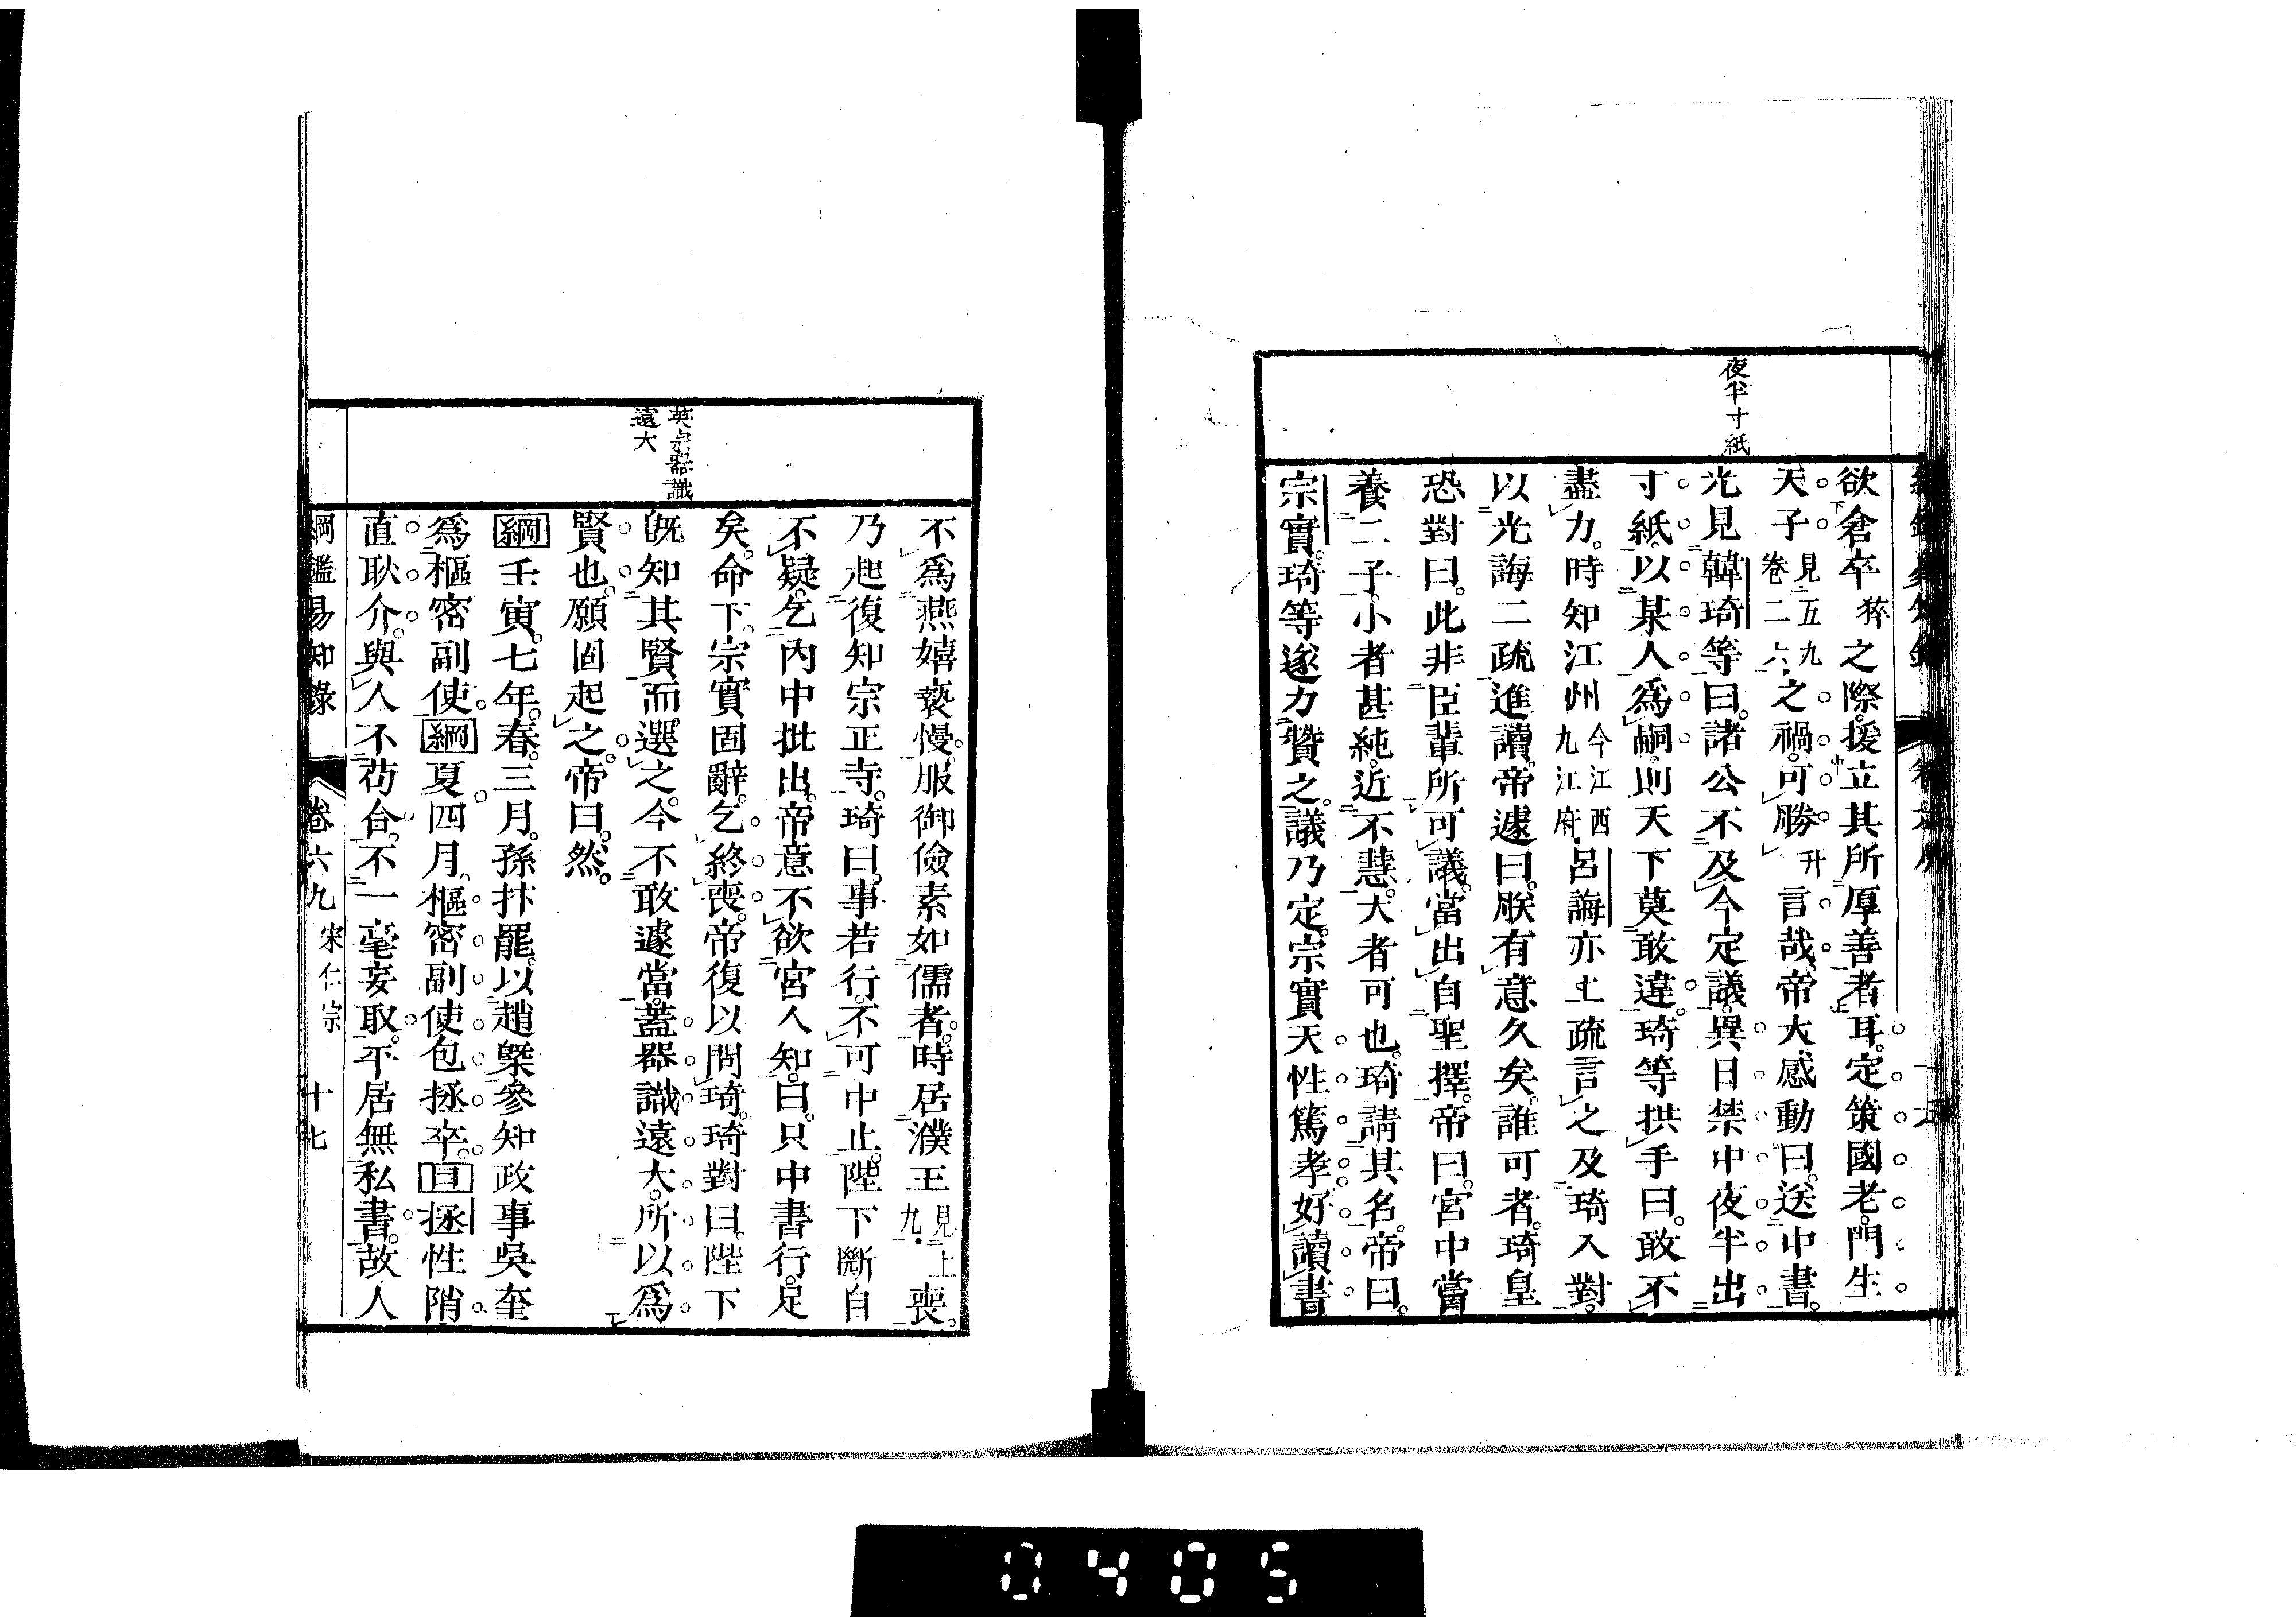 夜半寸紙
欲倉卒猝之際援立其所厚善者耳。定策國老。門生
天子見五九卷二六之禍可勝升言哉。帝大感動曰。送中書。
光見韓琦等曰。諸公不及今定議。異日禁中夜半出
寸紙。以某人爲嗣。則天下莫敢違。琦等拱手曰。敢不
盡力。時知江州今江西九江府呂誨亦上疏言之。及琦入對。
以光誨二疏進讀。帝遽曰。朕有意久矣。誰可者。琦皇
恐對曰。此非臣輩所可議。當出自聖擇。帝曰。宮中嘗
養二子。小者甚純。近不慧。大者可也。琦請其名。帝曰。
宗實。琦等遂力贊之。議乃定。宗實天性篤孝。好讀書
英宗器識
遠大
不爲燕嬉褻慢。服御儉素如儒者。時居濮王見上九喪。
乃起復知宗正寺。琦曰。事若行。不可中止。陛下斷自
不疑。乞內中批出。帝意不欲宮人知。曰。只中書行。足
矣。命下。宗實固辭。乞終喪。帝復以問琦。琦對曰。陛下
旣知其賢而選之。今不敢遽當。蓋器識遠大。所以爲
賢也。願固起之。帝曰。然。
綱壬寅。七年。春。三月。孫抃罷。以趙槩參知政事吳奎
爲樞密副使。綱夏四月。樞密副使包拯卒。目拯性陗
直耿介。與人不苟合。不一毫妄取。平居無私書。故人
綱鑑易知錄 卷六九 宋仁宗 十七